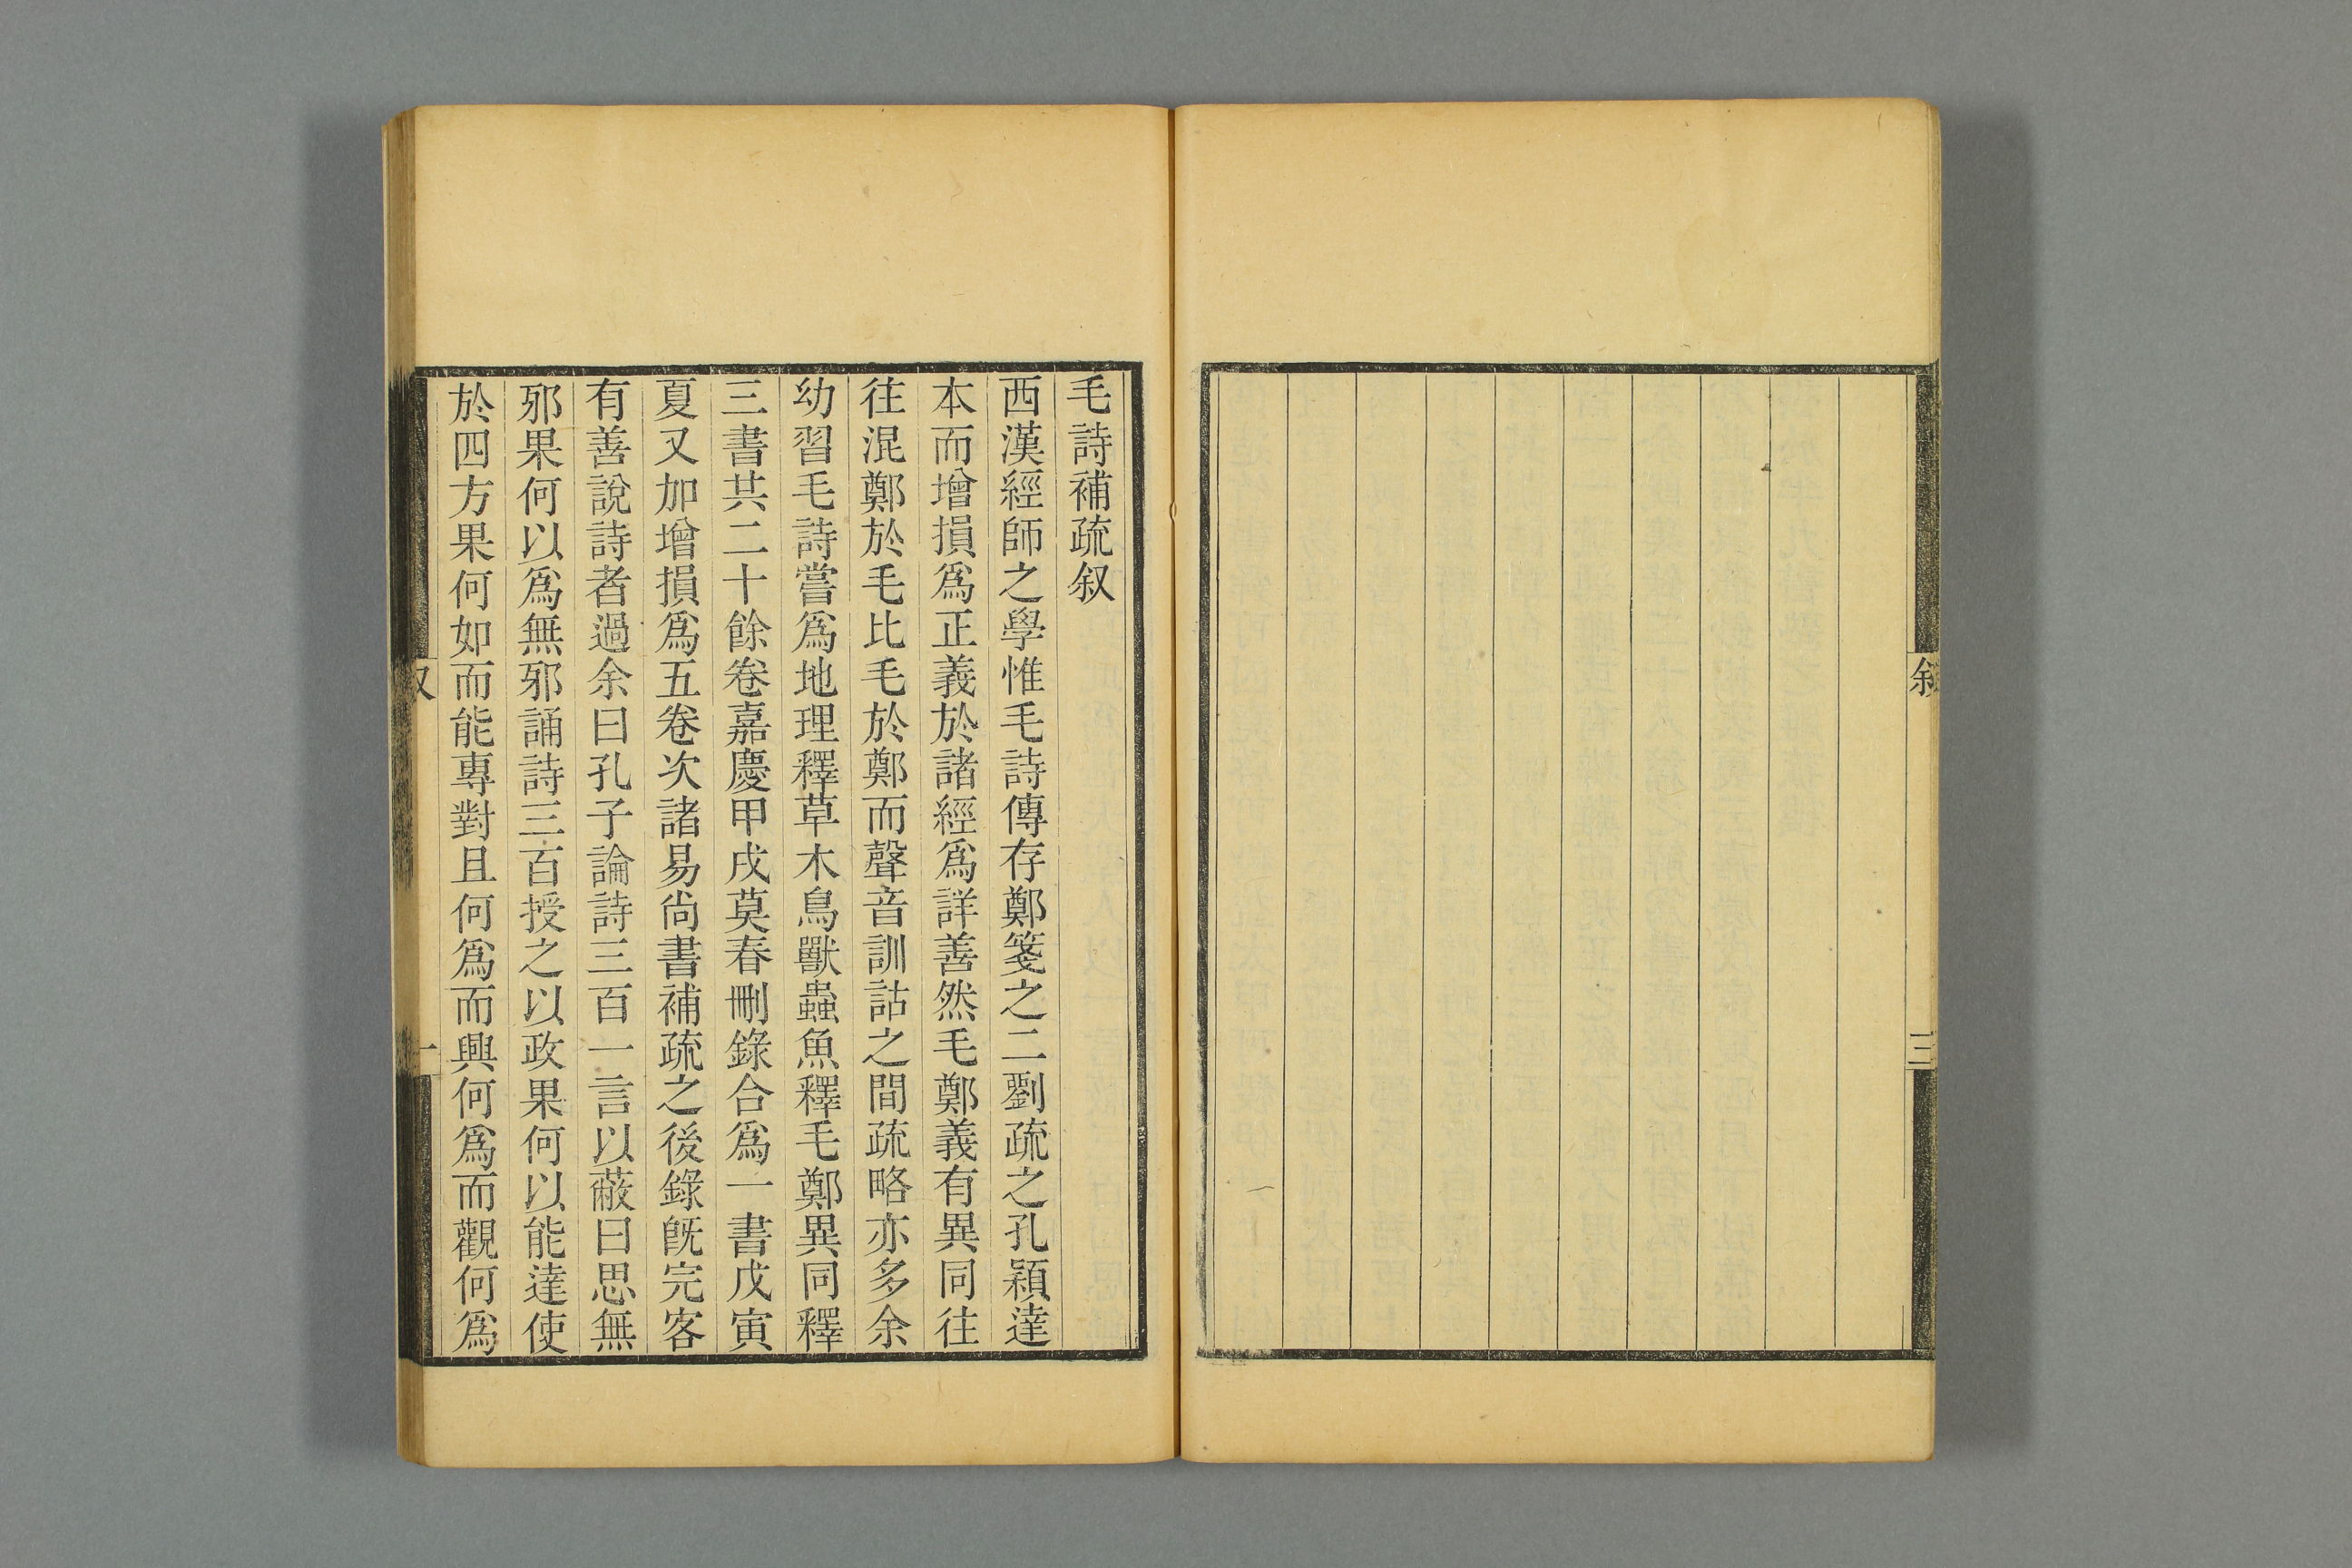 敘
三
毛詩補疏叙
西漢經師之學惟毛詩傳存鄭箋之二劉疏之孔穎達
本而增損爲正義於諸經爲詳善然毛鄭義有異同往
往混鄭於毛比毛於鄭而聲音訓詁之間疏略亦多余
幼習毛詩嘗爲地理釋草木鳥獸蟲魚釋毛鄭異同釋
三書共二十餘卷嘉慶甲戌莫春刪錄合爲一書戊寅
夏又加增損爲五卷次諸易尙書補疏之後錄旣完客
有善說詩者過余曰孔子論詩三百一言以蔽曰思無
邪果何以爲無邪誦詩三百授之以政果何以能達使
於四方果何如而能專對且何爲而興何爲而觀何爲
叙
一